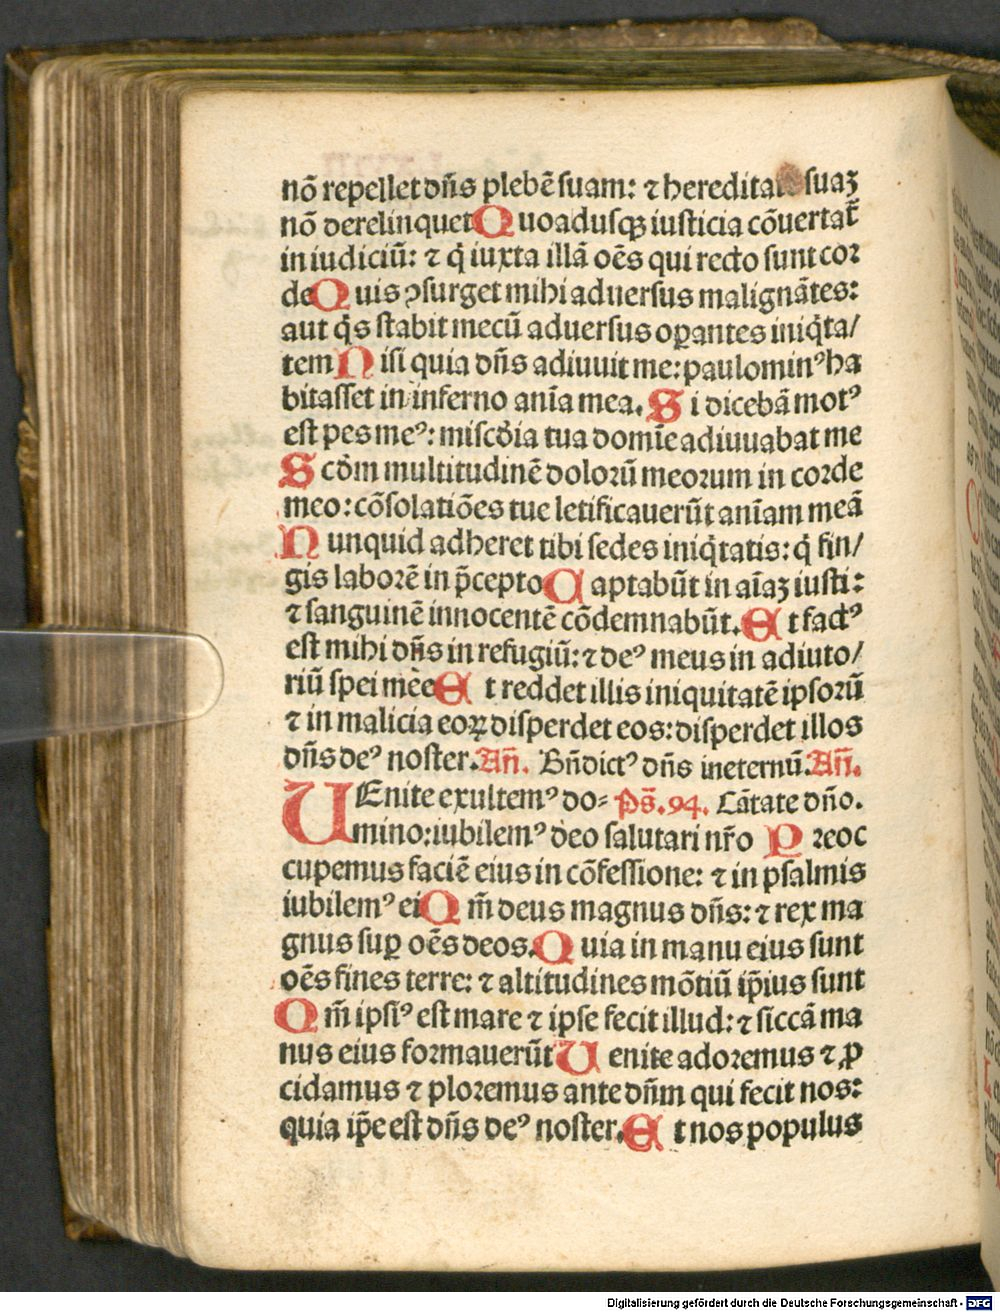 nō repellet dn̄s plebē suam: ⁊ hereditatē suaꝫ
nō derelinquet Quoadusqꝫ iusticia cōuertat᷑
in iudiciū: ⁊ q̇ iuxta illā oēs qui recto sunt cor
de Quis ꝯsurget mihi aduersus malignātes:
aut q̇s stabit mecū aduersus oꝑantes iniq̇ta/
tem Nisi quia dn̄s adiuuit me: paulominꝰ ha
bitasset in inferno anīa mea. Si dicebā motꝰ
est pes meꝰ: miscd̄ia tua domīe adiuuabat me
Scd̄m multitudinē dolorū meorum in corde
meo: cōsolatiōes tue letificauerūt anīam meā
Nunquid adheret tibi sedes iniq̇tatis: q̇ fin/
gis laborē in p̄cepto Captabūt in aīaꝫ iusti:
⁊ sanguinē innocentē cōdemnabūt. Et factꝰ
est mihi dn̄s in refugiū: ⁊ deꝰ meus in adiuto/
riū spei mēe Et reddet illis iniquitatē ipsorū
⁊ in malicia eoꝝ disperdet eos: disperdet illos
dn̄s deꝰ noster. An̄. Bn̄dictꝰ dn̄s ineternū. An̄.
UEnite exultemꝰ do⸗ Ps̄. 94. Cātate dn̄o.
mino: iubilemꝰ deo salutari nr̄o Preoc
cupemus faciē eius in cōfessione: ⁊ in psalmis
iubilemꝰ ei Qm̄ deus magnus dn̄s: ⁊ rex ma
gnus suꝑ oēs deos. Quia in manu eius sunt
oēs fines terre: ⁊ altitudines mōtiū ip̄ius sunt
Qm̄ ipsiꝰ est mare ⁊ ipse fecit illud: ⁊ siccā ma
nus eius formauerūt Uenite adoremus ⁊ ꝓ
cidamus ⁊ ploremus ante dn̄m qui fecit nos:
quia ip̄e est dn̄s deꝰ noster. Et nos populus
Digitalisierung gefördert durch die Deutsche Forschungsgemeinschaft - DFG